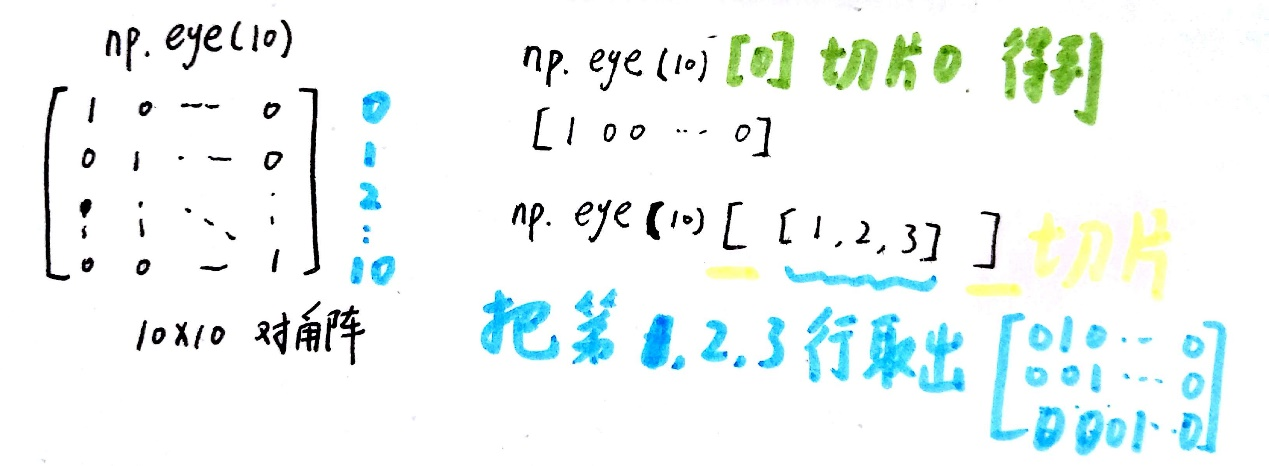 np. eye(10)
[ 1 0 --- 0 ] 0
[ 0 1 · -- 0 ] 1
[ ⋮ ⋮ ⋱ ⋮ ] 2
⋮
[ 0 0 — 1 ] 10
10×10 对角阵
np. eye(10) [0] 切片0 得到
[1 0 0 ... 0]
np. eye(10) [ [1,2,3] ] 切片
把第1.2.3行取出
[ 0 1 0 ... 0
0 0 1 ... 0
0 0 0 1 ·· 0 ]